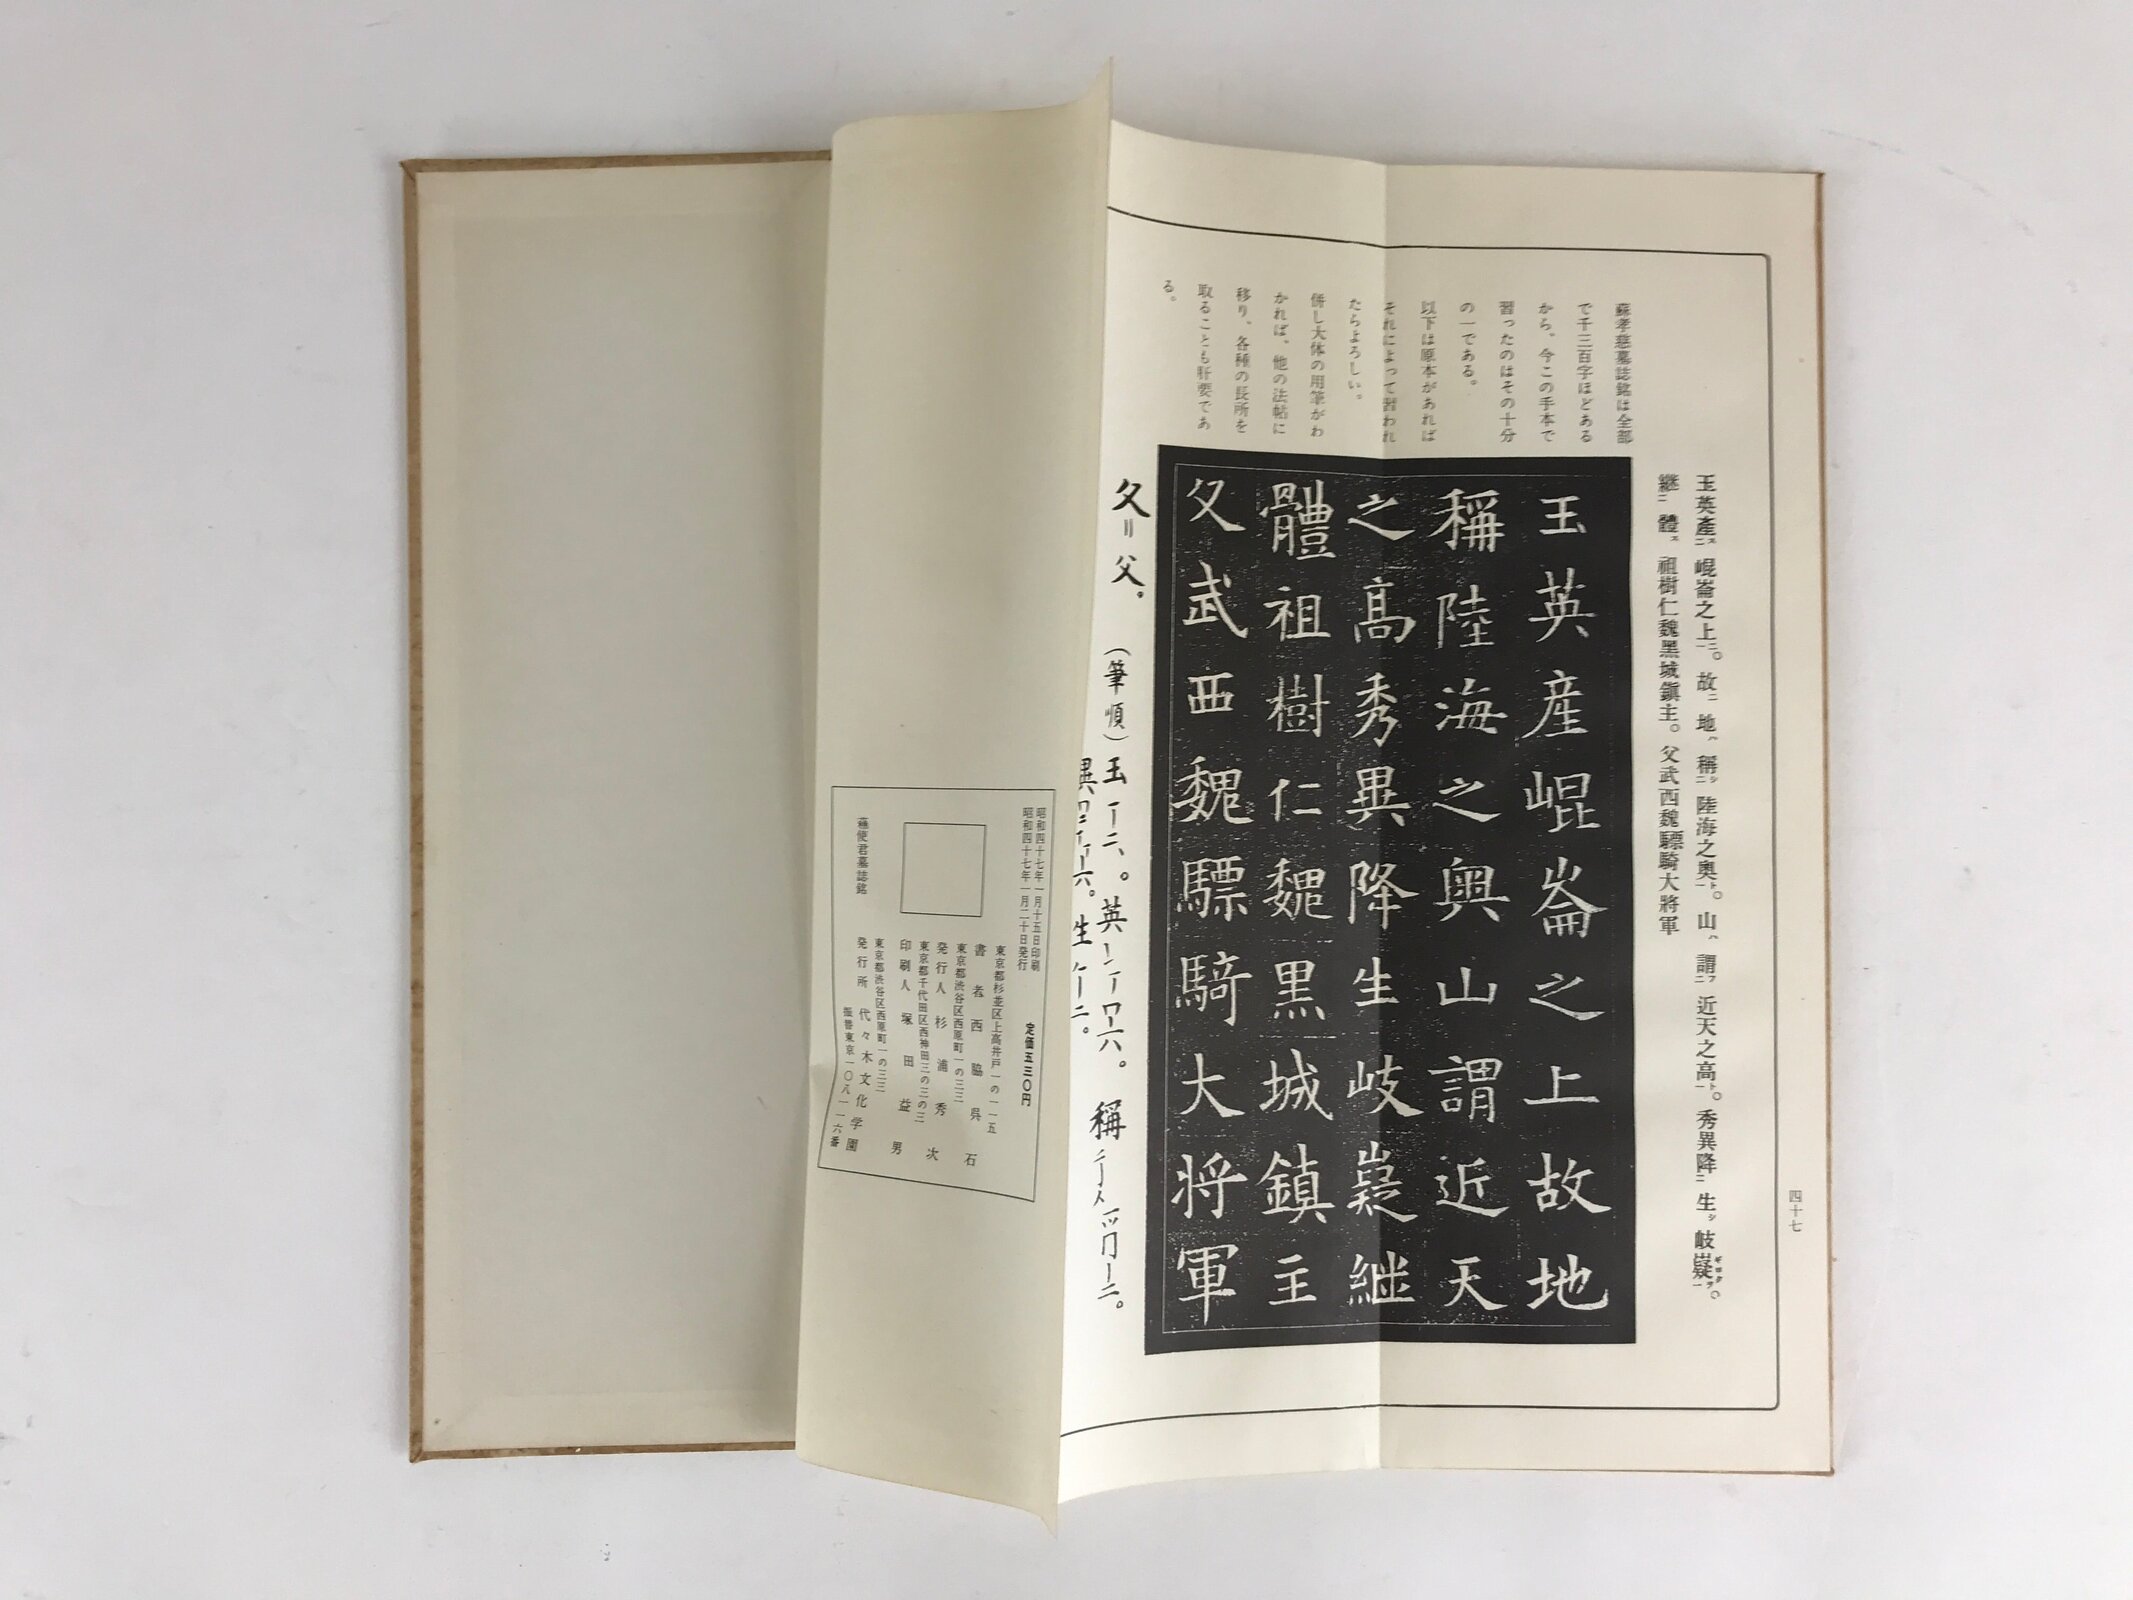 四十七
玉英產ス二崐崙之上ニ一。故ニ地ハ稱シ二陸海之奧ト一。山ハ謂フ二近天之高ト一。秀異降シ二生シ岐嶷ギヨクヲ一。
継ニ體ス。祖樹仁魏黑城鎭主。父武西魏驃騎大將軍
蘇孝慈墓誌銘は全部
で千三百字ほどある
から、今この手本で
習ったのはその十分
の一である。
以下は原本があれば
それによって習われ
たらよろしい。
併し大体の用筆がわ
かれば、他の法帖に
移り、各種の長所を
取ることも肝要であ
る。
玉英産崐崙之上故地
稱陸海之奥山謂近天
之高秀異降生岐嶷継
體祖樹仁魏黒城鎮主
父武西魏驃騎大将軍
父＝父。
（筆順）玉 英 稱
異 生
昭和四十七年一月十五日印刷
昭和四十七年一月二十日発行
定価五三〇円
東京都杉並区上高井戸一の一一五
書者 西脇呉石
東京都渋谷区西原町一の三三
発行人 杉浦秀次
東京都千代田区西神田三の三の三
印刷人 塚田益男
東京都渋谷区西原町一の三三
発行所 代々木文化学園
振替東京一〇八一一六番
蘓使君墓誌銘